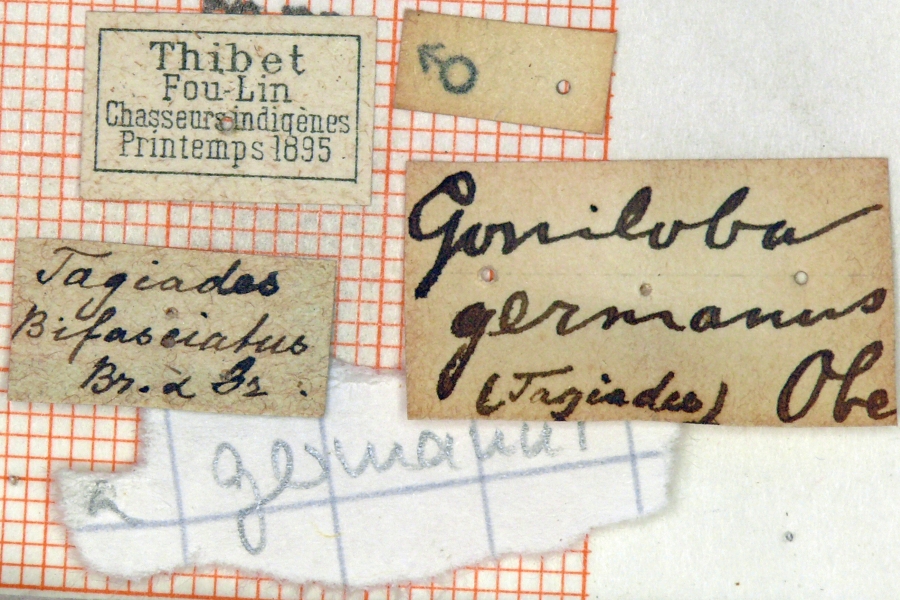 Thibet
Fou-Lin
Chasseurs indigènes
Printemps 1895
♂
Goniloba
germanus
(Tagiades) Obe
Tagiades
Bifasciatus
Br. &
germanus